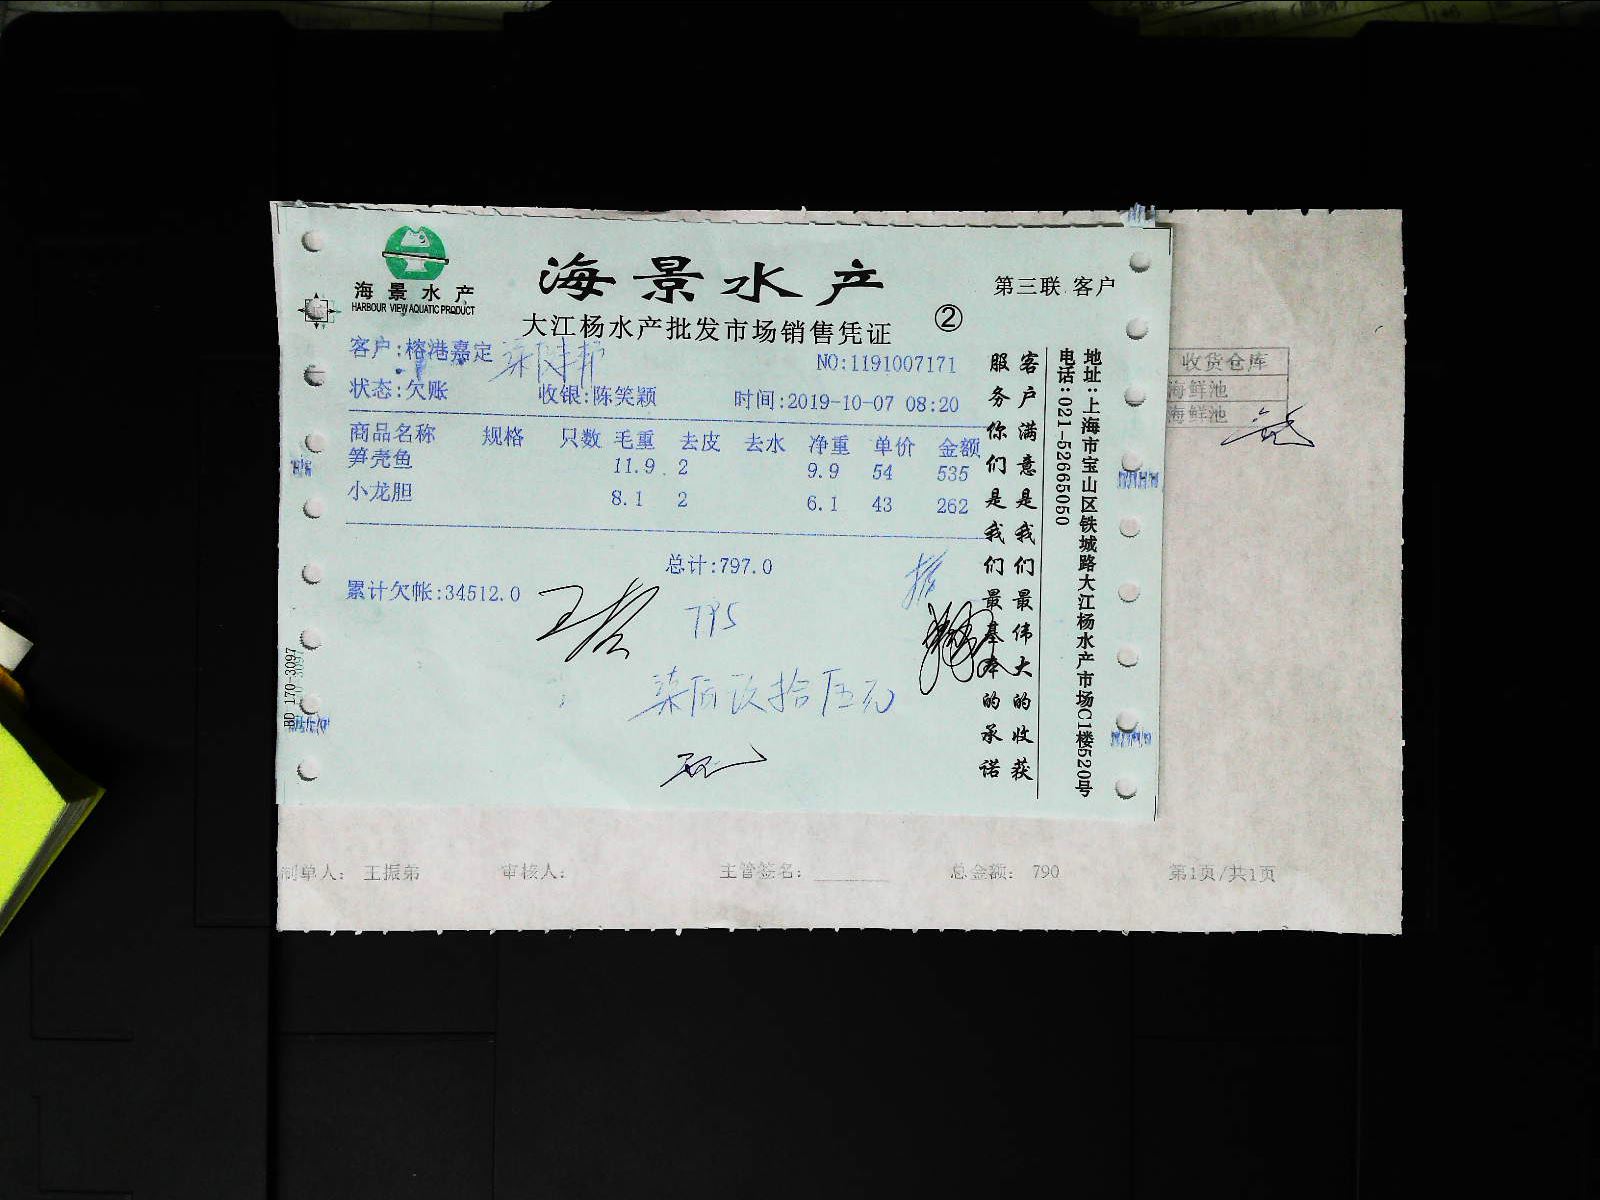 海景水产
HARBOUR VIEW AQUATIC PRODUCT
海景水产
大江杨水产批发市场销售凭证
②
第三联 客户
客户:榕港嘉定
NO:1191007171
状态:欠账 收银:陈笑颖 时间:2019-10-07 08:20
商品名称 规格 只数 毛重 去皮 去水 净重 单价 金额
笋壳鱼 11.9 2 9.9 54 535
小龙胆 8.1 2 6.1 43 262
总计:797.0
累计欠帐:34512.0
795
柒佰玖拾伍元
客户满意是我们最伟大的收获
服务你们是我们最基本的承诺
地址:上海市宝山区铁城路大江杨水产市场C1楼520号
电话:021-52665050
BD 170-3097
收货仓库
海鲜池
海鲜池
制单人: 王振弟 审核人: 主管签名: 总金额: 790 第1页/共1页